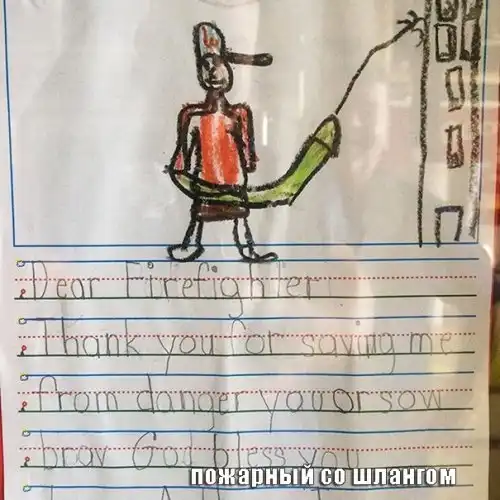 Dear Firefighter
Thank you for saving me
from danger you or sow
brav God bless you
пожарный со шлангом